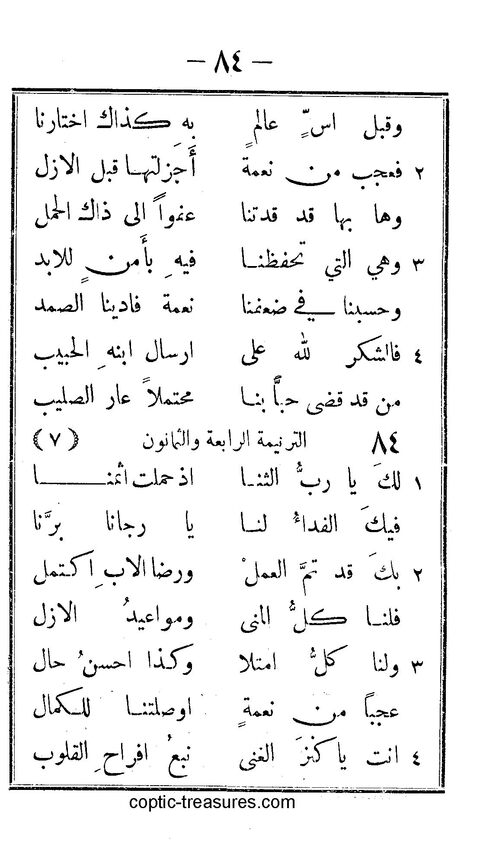 — ٨٤ —
وقبل اسِّ عالمٍ به كذاك اختارنا
٢ فعجب من نعمة أَجزلتها قبل الازل
وها بها قد قدتنا عنواً الى ذاك الحمل
٣ وهي التي تحفظنا فيهِ بأَمنٍ للابد
وحسبنا في ضعفنا نعمة فادينا الصمد
٤ فالشكر لله على ارسال ابنهِ الحبيب
من قد قضى حبًّا بنا محتملاً عار الصليب
٨٤ الترنيمة الرابعة والثمانون (٧)
١ لكَ يا ربُّ الثنا اذ حملت اثمنا
فيكَ الفداءُ لنا يا رجانا برَّنا
٢ بكَ قد تمَّ العملْ ورضا الابِ اكتمل
فلنا كلُّ المنى ومواعيدُ الازل
٣ ولنا كلُّ امتلا وكذا احسنُ حال
عجباً من نعمةٍ اوصلتنا للكمال
٤ انت يا كنزَ الغنى نبعُ افراحِ القلوب
coptic-treasures.com